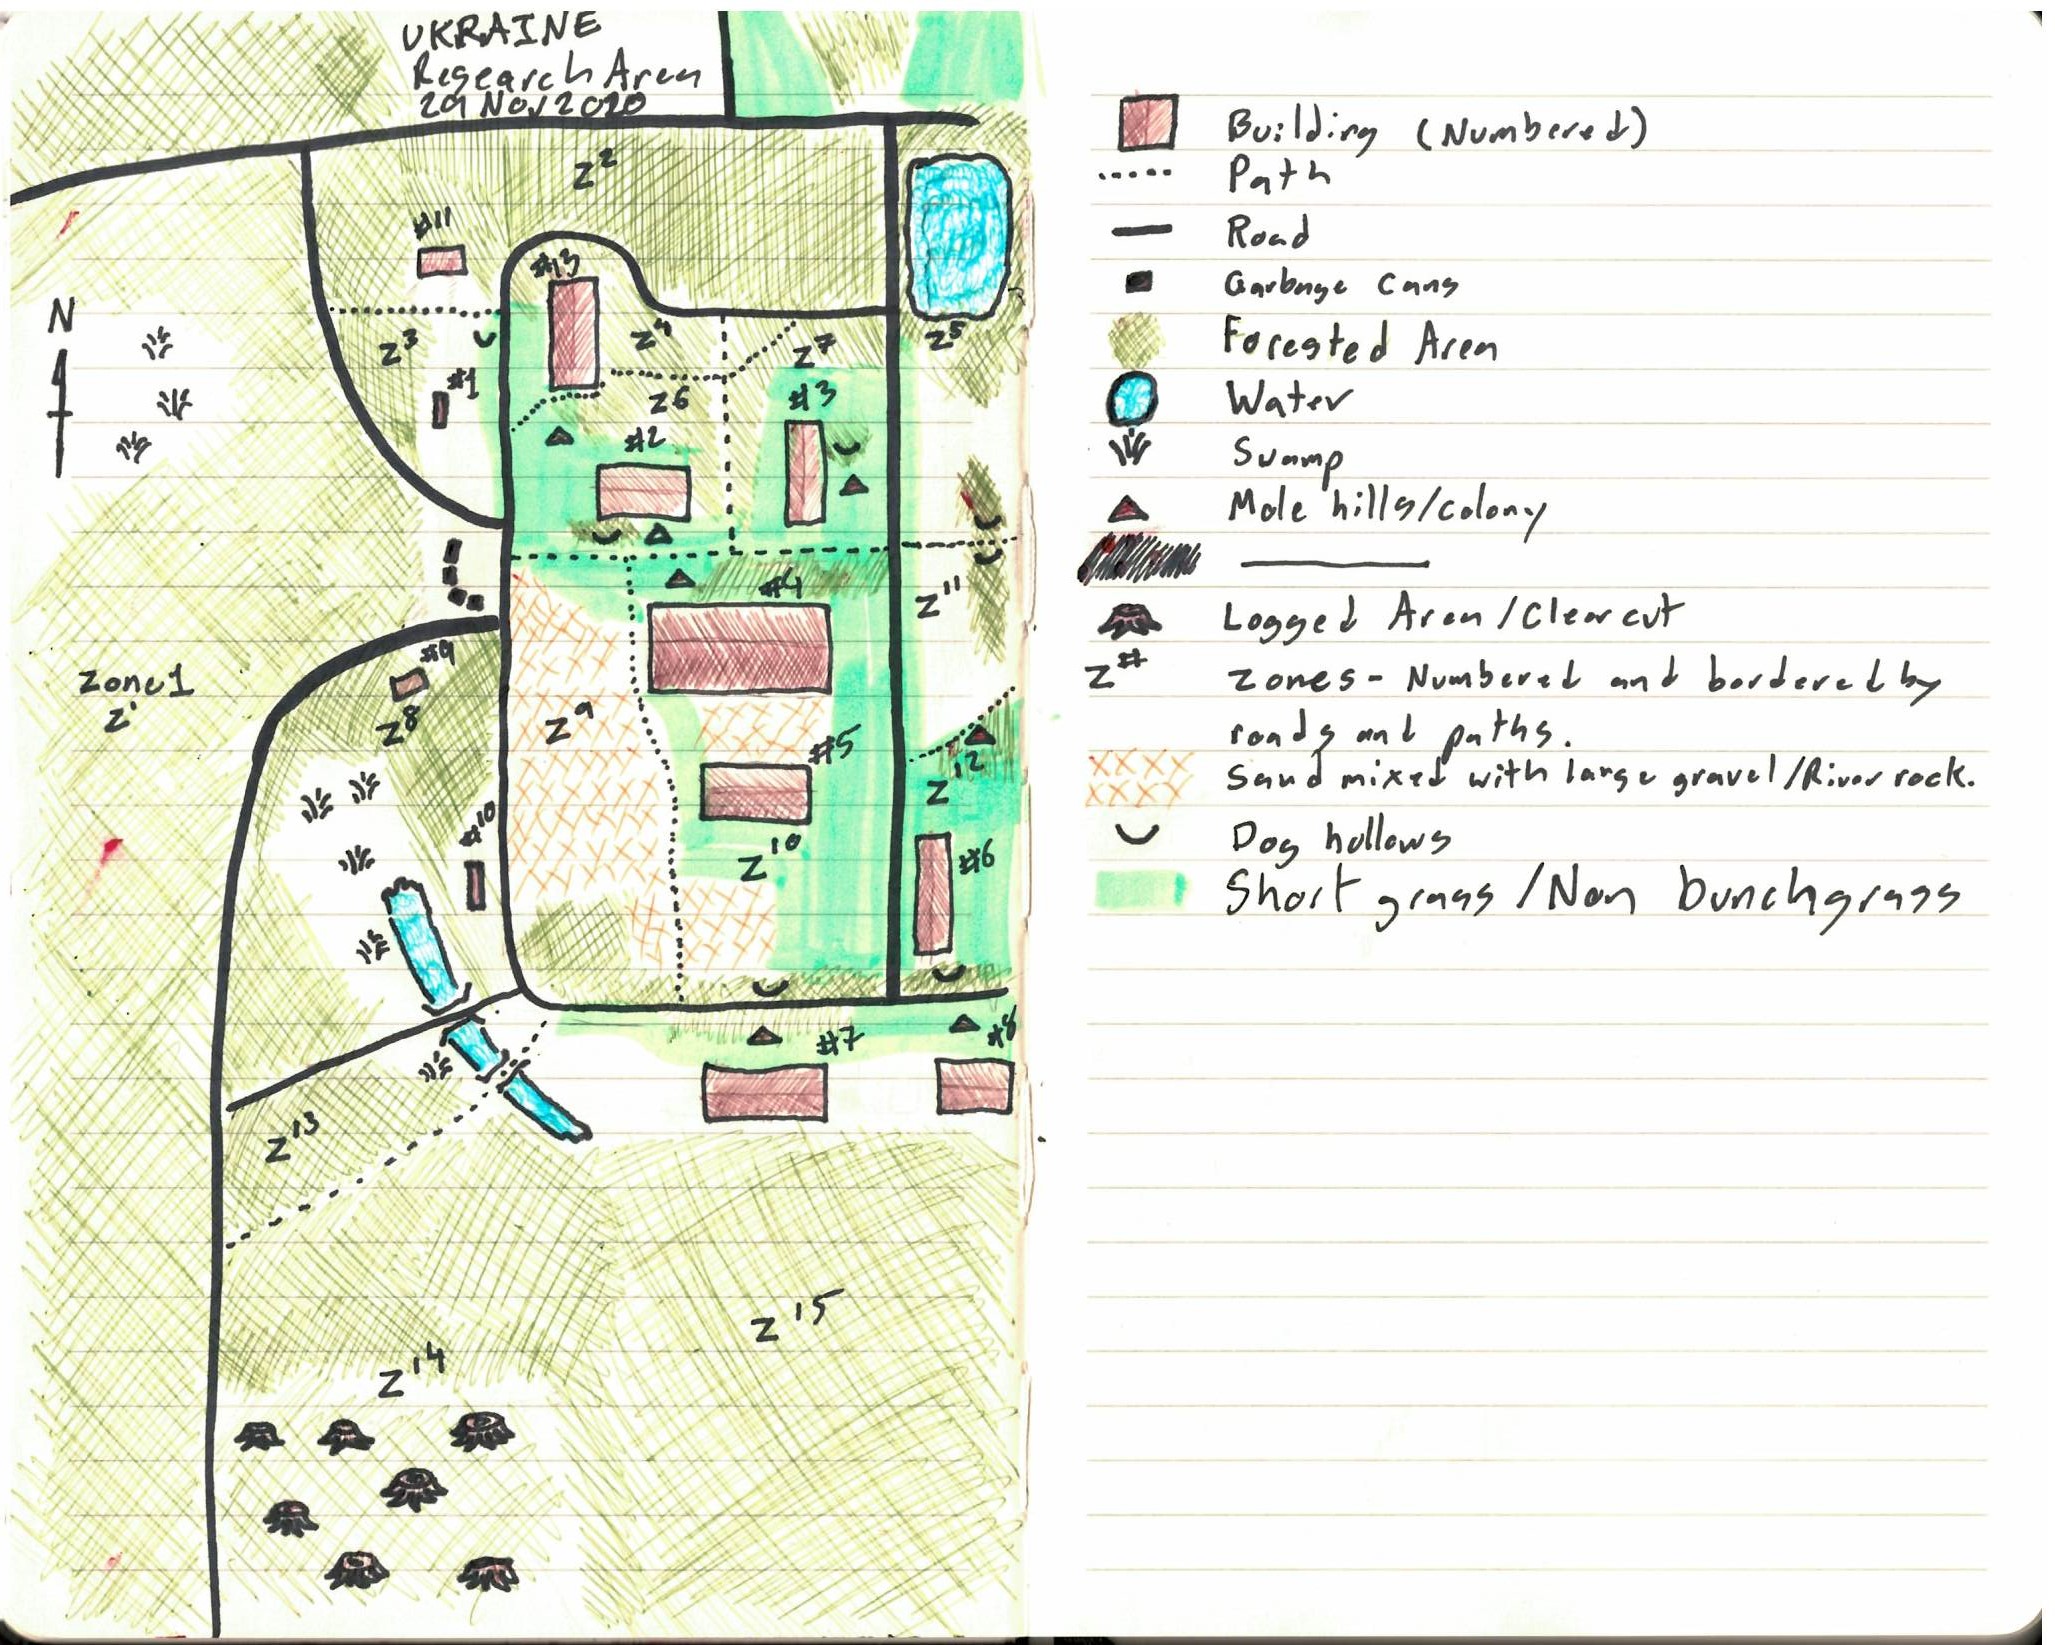 UKRAINE
Research Area
29 Nov 2020
Z2
#11
#13
N
Z3
Z4
Z7
Z5
#1
Z6
#3
#2
#4
Z11
#9
zone 1
Z1
Z8
Z9
#5
Z12
#10
Z10
#6
#7
#8
Z13
Z15
Z14
Building (Numbered)
Path
Road
Garbage cans
Forested Area
Water
Swamp
Mole hills/colony
Logged Area/Clearcut
Z#
zones - Numbered and bordered by
roads and paths.
Sand mixed with large gravel/River rock.
Dog hollows
Short grass /Non bunchgrass